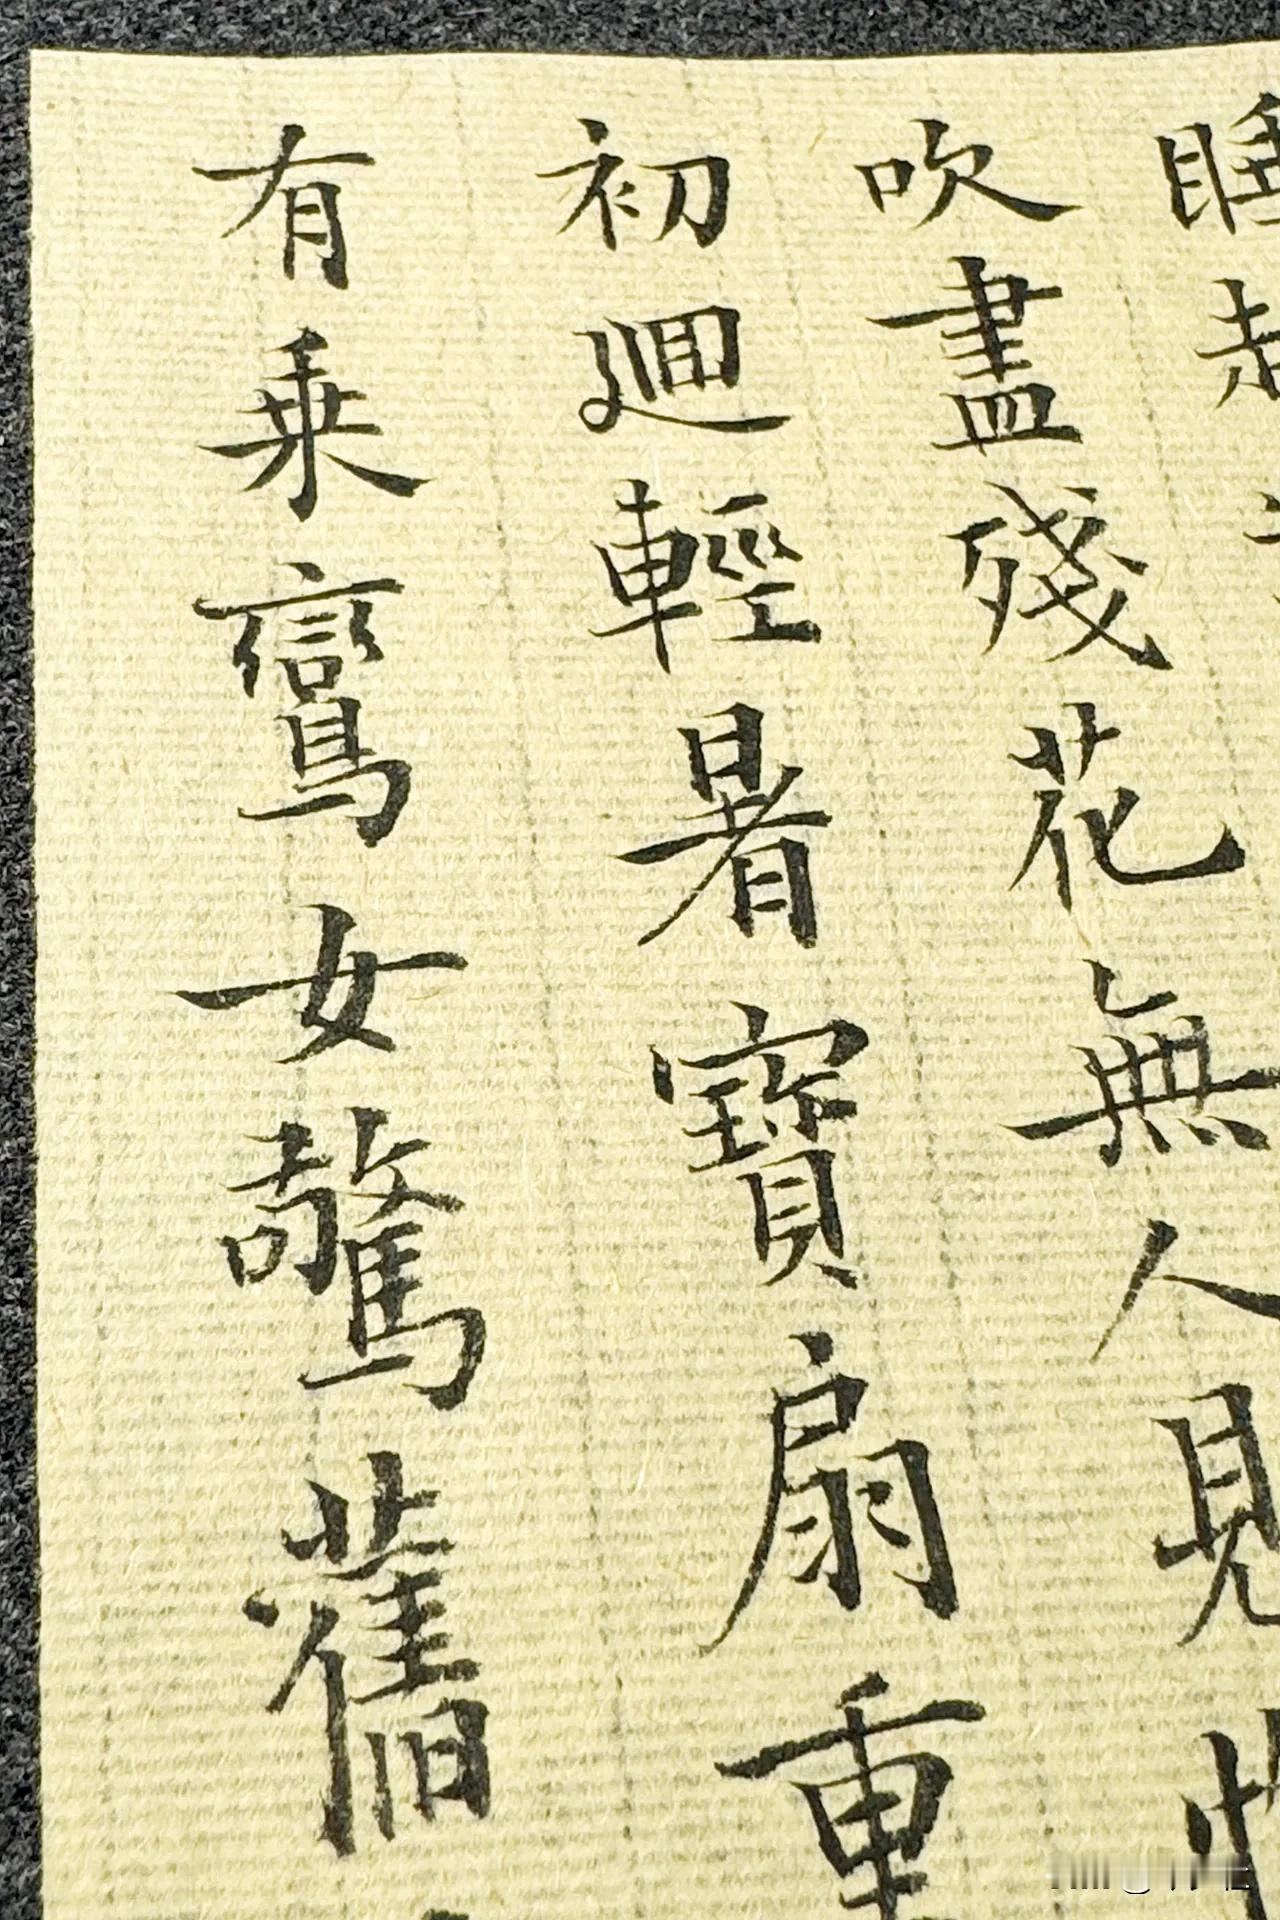 睡起
吹盡殘花無人見
初迴輕暑寶扇重
有乗鸞女驚舊